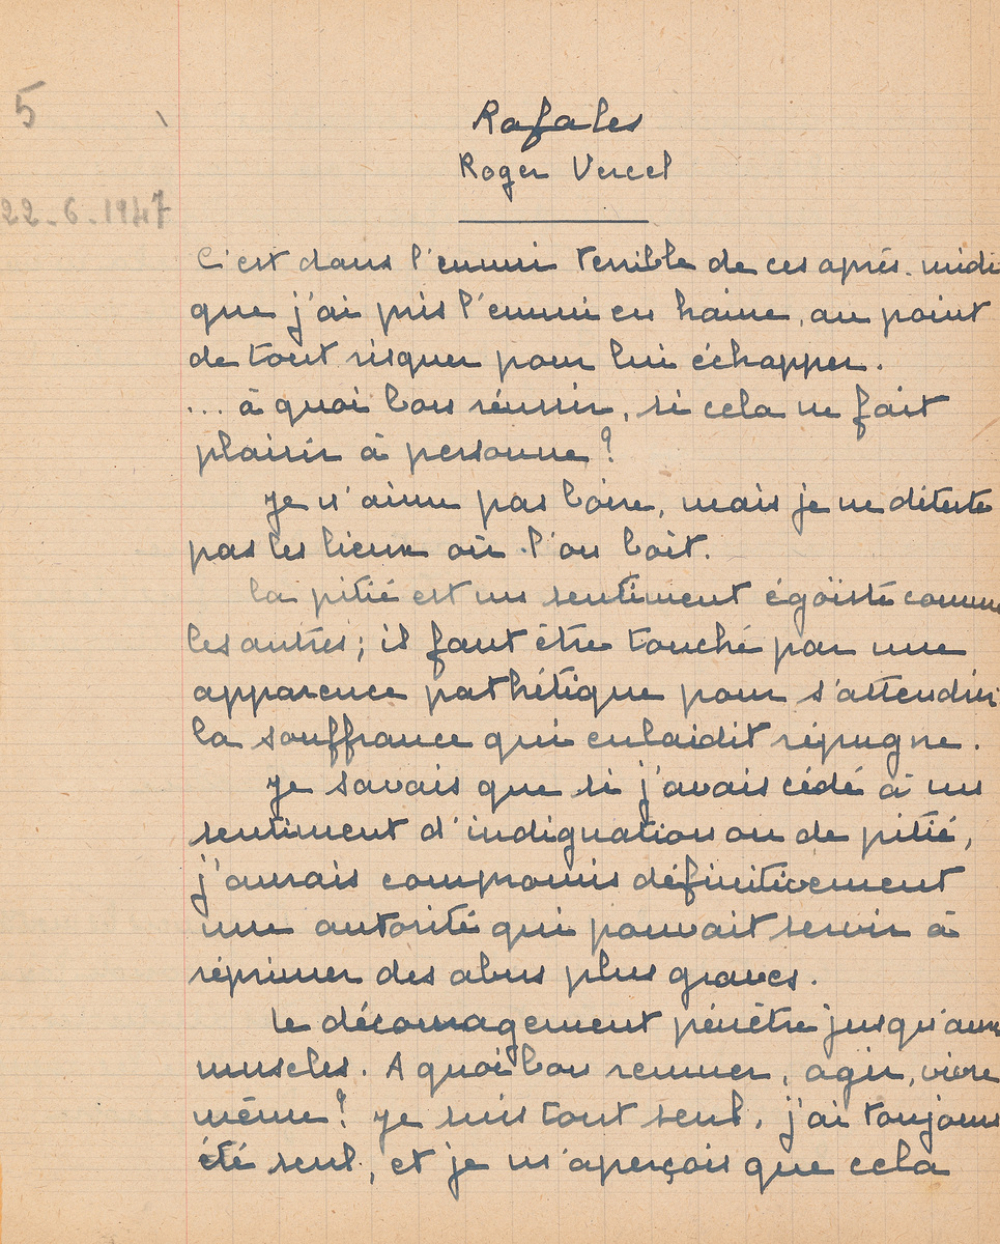 5
Rafales
Roger Vercel
22-6-1947
C'est dans l'ennui terrible de ces après-midi
que j'ai pris l'ennui en haine, au point
de tout risquer pour lui échapper.
... à quoi bon réussir, si cela ne fait
plaisir à personne ?
Je n'aime pas boire, mais je ne déteste
pas les lieux où l'on boit.
La pitié est un sentiment égoïste comme
les autres ; il faut être touché par une
apparence pathétique pour s'attendrir
la souffrance qui enlaidit répugne.
Je savais que si j'avais cédé à un
sentiment d'indignation ou de pitié,
j'aurais compromis définitivement
une autorité qui pouvait servir à
réprimer des abus plus graves.
Le découragement pénètre jusqu'aux
muscles. A quoi bon remuer, agir, vivre
même ? Je suis tout seul, j'ai toujours
été seul, et je m'aperçois que cela